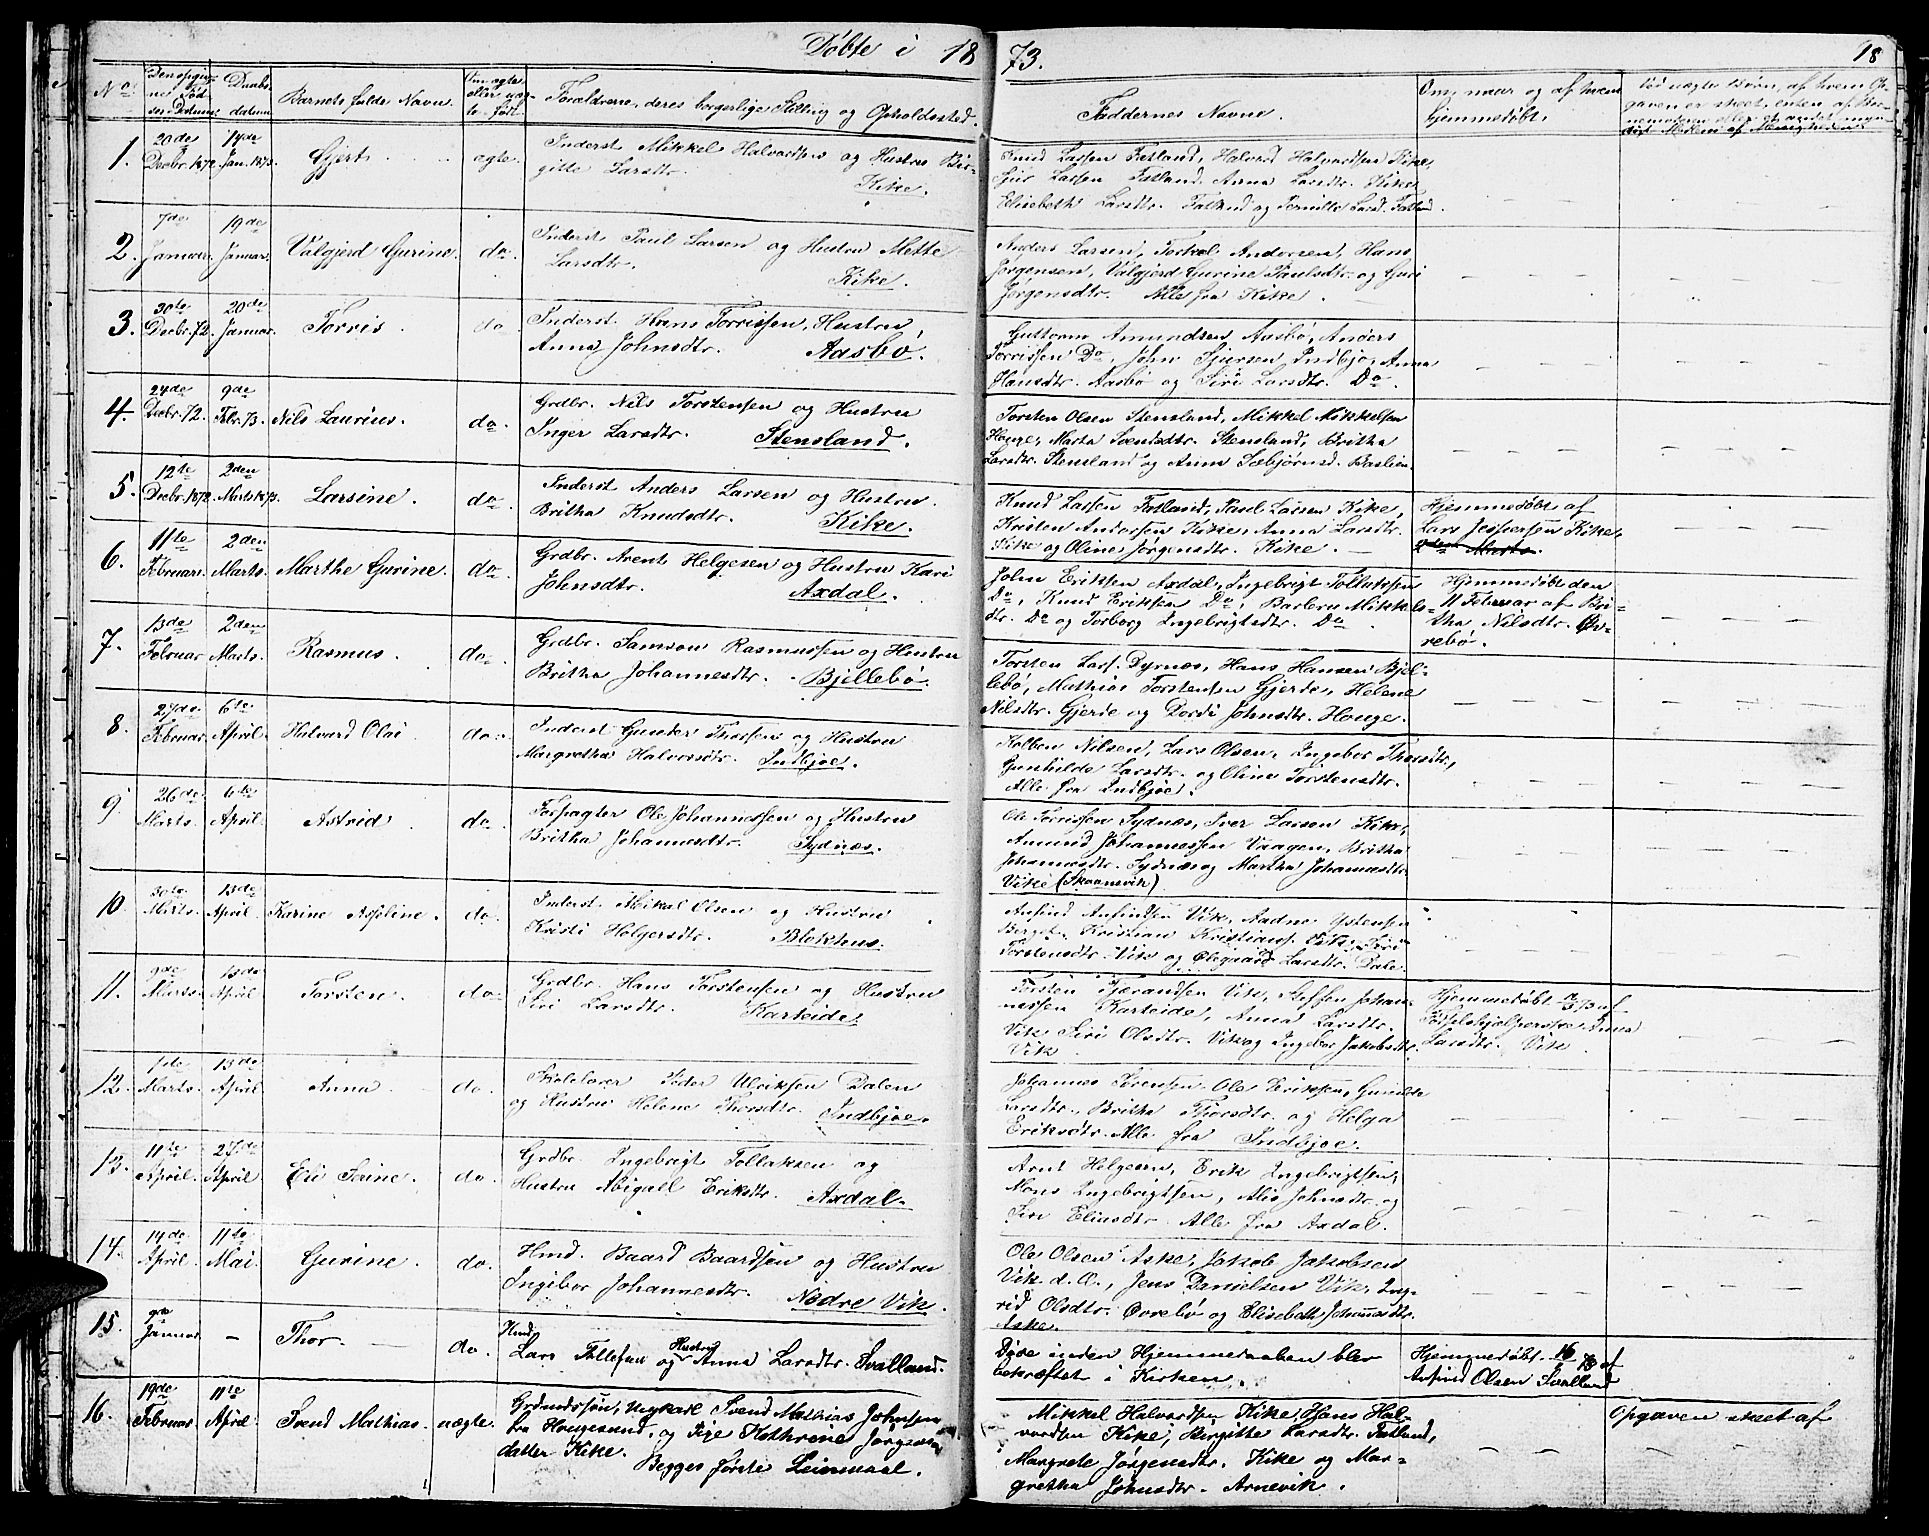 Døbte i 1873.
18
No.
Den opgivne Fødsels Datum.
Daabsdatum
Barnets fulde Navn.
Om ægte eller uægte født.
Forældrene, deres borgerlige Stilling og Opholdssted.
Faddernes Navne.
Om, naar og af hvem hjemmedøbt.
Ved uægte Børn, af hvem Opgaven er skeet, enten af Barnemoderen eller et andet myndigt Medlem af Menigheden.
1. 20de Decbr. 1872. 17de Jan. 1873. Gjert. ægte.
Inderst Mikkel Halvardsen og Hustru Bir-
gitte Larsdtr. Kike.
Knud Larsen Fatland, Halvard Halvardsen Kike,
Sjur Larsen Fatland. Anna Larsdtr. Kike,
Elisabeth Larsdtr. Fatland og Pernille Larsd. Fatland.
2. 7de Januar. 19de Januar. Valgjerd Gurine. do.
Inderst Paul Larsen og Hustru Mette
Larsdtr. Kike.
Anders Larsen, Torkel Andersen, Hans
Jørgensen, Valgjerd Gurine Paulsdtr. og Guri
Jørgensdtr. Alle fra Kike.
3. 30te Decbr. 72. 20de Januar. Torris. do
Inderst. Hans Torrissen, Hustru,
Anna Johnsdtr. Aasbø.
Guttorm Amundsen Aasbø, Anders
Torrissen Do, John Sjursen Indbjo, Anna
Hansdtr. Aasbø og Siri Larsdtr. Do.
4. 24de Decbr. 72. 9de Febr. 73. Nils Laurius. do.
Grdbr. Nils Torstensen og Hustru
Inger Larsdtr. Stensland.
Torsten Olsen Stensland, Mikkel Mikkelsen
Houge, Marta Svendsdtr. Stensland, Britha
Larsdtr. Stensland og Anna Sæbjørnsd. Baslien
5. 12te Decbr. 1872. 2den Marts 1873. Larsine. do.
Inderst Anders Larsen og Hustru
Britha Knudsdtr. Kike.
Knud Larsen Fatland, Paul Larsen Kike,
Kristen Andersen Kike, Anna Larsdtr.
Kike og Oline Jørgensdtr. Kike.
Hjemmedøbt af
Lars Jespersen Kike,
2den Marts.
6. 11te Februar. 2den Marts. Marthe Gurine. do.
Grdbr. Arent Helgesen og Hustru Kari
Johnsdtr. Axdal.
John Eriksen Axdal, Ingebrigt Tollaksen
Do, Knud Eriksen Do, Barbru Mikkels-
dtr. Do og Torborg Ingebrigtsdtr. Do
Hjemmedøbt den
11 Februar af Bri-
tha Nilsdtr. Øv-
rebø.
7. 13de Februar 2den Marts. Rasmus. do.
Grdbr. Samson Rasmussen og Hustru
Britha Johannesdtr. Bjellebø.
Torsten Lars. Dyrnæs, Hans Hansen Bjel-
lebø, Mathias Torstensen Gjerde, Helene
Nilsdtr. Gjerde og Dordi Johnsdtr. Houge.
8. 27de Februar. 6te April. Halvard Olai do.
Inderst Gunder Thorsen og Hustru
Margretha Halvorsdtr. Indbjoe.
Kolben Nilsen, Lars Olsen, Ingebor Thorsdtr.,
Gunhilde Larsdtr. og Oline Torstensdtr.
Alle fra Indbjoe.
9. 26de Marts. 6te April. Astrid do.
Forpagter Ole Johannessen og Hustru
Britha Johannesdtr. Sydnæs.
Ole Torrissen Sydnæs, Iver Larsen Kike,
Amund Johannessen Vaagen, Britha
Johannesdtr. Sydnæs og Martha Johannesdtr.
Vike (Skaanevik)
10 30te Marts. 13de April. Karine Asseline. do
Inderst. Mikal Olsen og Hustru
Kristi Helgersdtr. Blokhus.
Anfind Anfindsen Vik, Aadne Ystensen
Berget, Kristian Kristians. Vik, Siri
Torstensdtr. Vik og Olegaard Larsdtr. Dale.
11. 9de Marts. 13de April Torsten. do.
Grdbr. Hans Torstensen og Hustru
Siri Larsdtr. Karteide.
Torsten Tjerandsen Vik, Steffen Johan-
nessen Karteide, Anna Larsdtr.
Vik Siri Olsdtr. Vik og Ingebor Jakobsdtr.
Vik
Hjemmedøbt 73 af
Fødselshjælperske Anna
Larsdtr. Vik
12. Marts. 13de April Anna. do.
Skolelærer Peder Ulriksen Dalen
og Hustru Helene Thorsdtr. Indbjoe.
Johannes Sørensen. Ole Eriksen, Gunilde
Larsdtr., Britha Thorsdtr. og Helga
Eriksdtr. Alle fra Indbjoe.
13. 11te April. 27de April Eli Serine. do.
Grdbr. Ingebrigt Tollaksen og
Hustru Abigall Eriksdtr. Axdal.
Arnt Helgesen, Erik Ingebrigtsen,
Mons Ingebrigtsen, Alis Johnsdtr. og
Siri Eliasdtr. Alle fra Axdal.
14. 14de April. 11te Mai. Gurine. do.
Hmd. Baard Baardsen og Hustru
Ingibor Johannesdtr. Nedre Vik.
Ole Olsen Aske, Jakob Jakobsen
Vik d. A., Jens Danielsen Vik, Ing-
rid Olsdtr. Øvrebø og Elisabeth Johannesdtr.
Aske.
15. 9de Januar. – Thor do.
Hmd.
Lars Tollefsen og Hustru Anna Larsdtr. Svalland.
Døde inden Hjemmedaaben blev
bekræftet i Kirken.
Hjemmedøbt 16/ 73 af
Anfind Olsen Svalland
16. 19de Februar 11te April. Svend Mathias. uægte.
Grdmdssøn, Ungkarl Svend Mathias Johnsen
fra Hougesund, og Pige Kathrine Jørgens-
datter Kike. Begges første Leiermaal.
Mikkel Halvardsen Kike, Hans Hal-
vardsen Kike, Birgitte Larsdtr. Fatland,
Margrete Jørgensdtr. Kike og Mar-
gretha Johnsdtr. Arnevik.
Opgaven skeet af